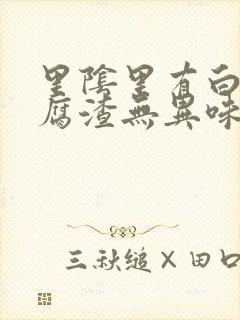 里陰里有白
腐渣無異味
三秋縋×田口